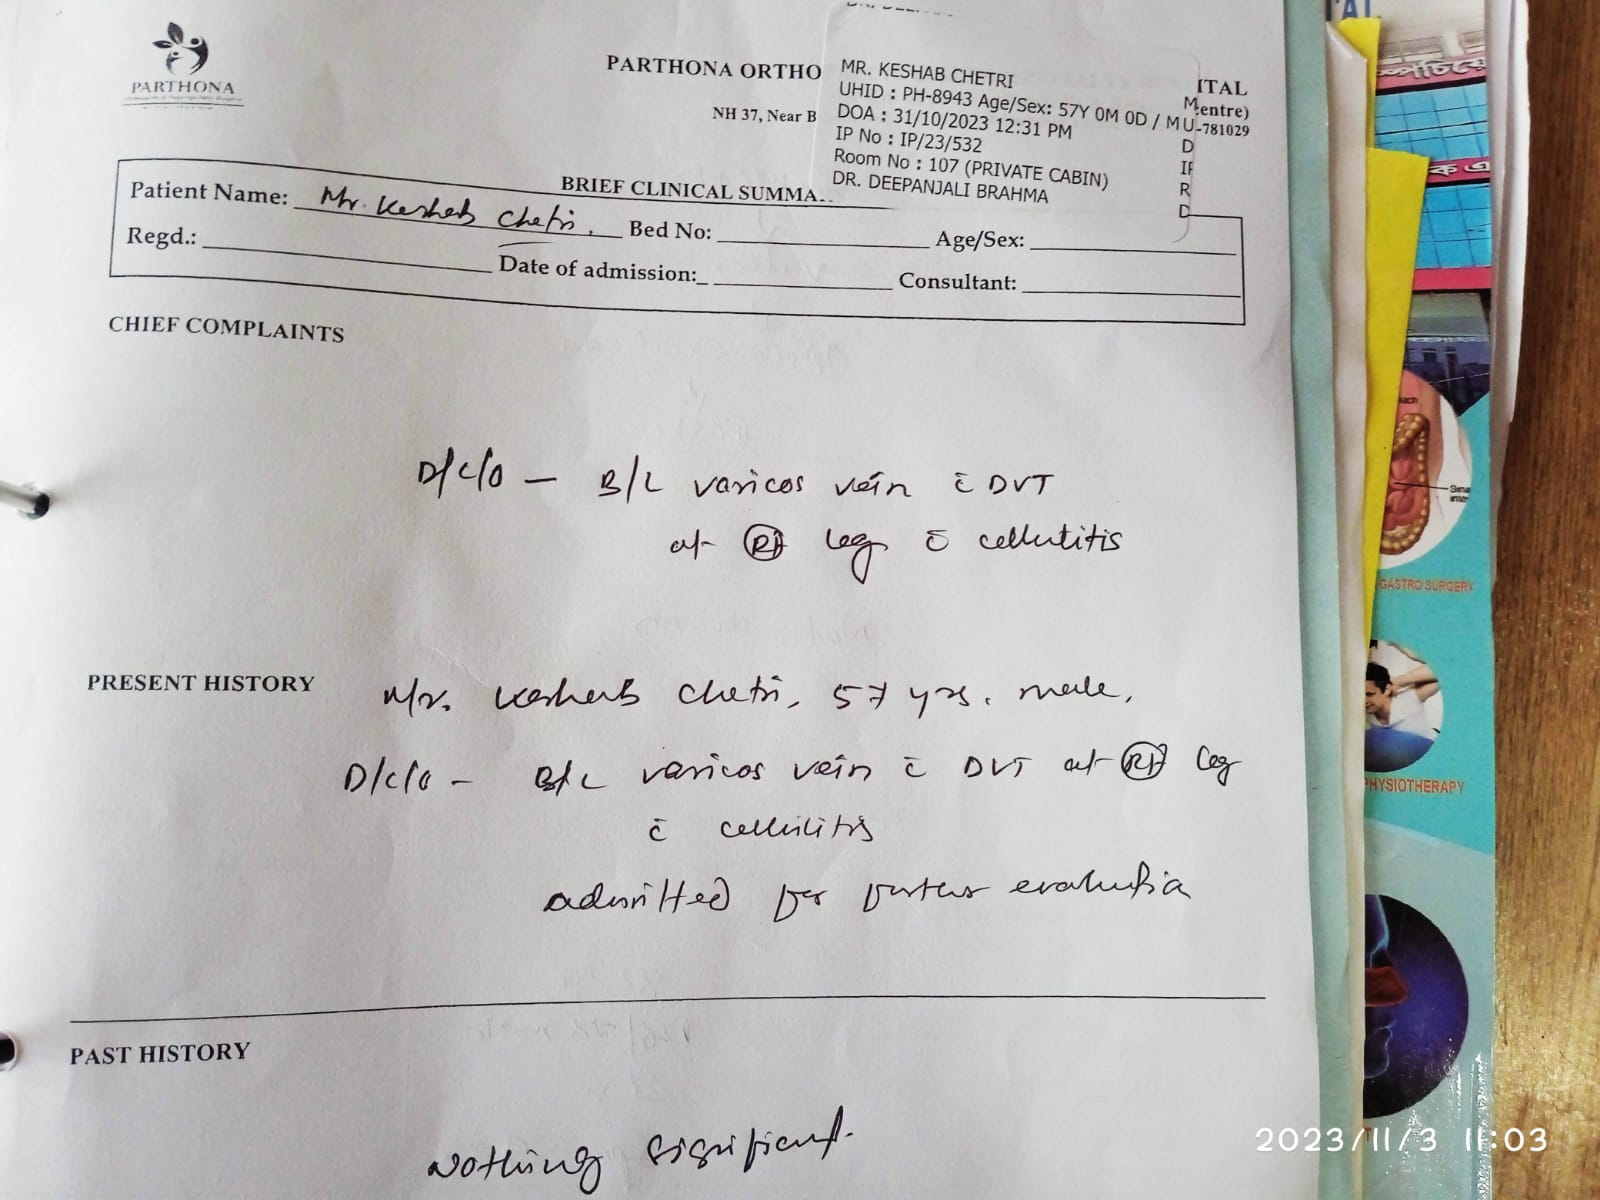 PARTHONA
PARTHONA ORTHO
ITAL
entre)
NH 37, Near B
-781029
MR. KESHAB CHETRI
UHID : PH-8943 Age/Sex: 57Y 0M 0D / M
DOA : 31/10/2023 12:31 PM
IP No : IP/23/532
Room No : 107 (PRIVATE CABIN)
DR. DEEPANJALI BRAHMA
M
U
D
IF
R
D
BRIEF CLINICAL SUMMA
Patient Name: Mr. Keshab Chetri. Bed No: Age/Sex:
Regd.: Date of admission: Consultant:
CHIEF COMPLAINTS
D/C/O – B/L varicos vein c̄ DVT
at Rt leg c̄ cellutitis
PRESENT HISTORY
Mr. Keshab Chetri, 57 yrs. male,
D/C/O – B/L varicos vein c̄ DVT at Rt leg
c̄ cellulitis
admitted for further evaluation
PAST HISTORY
Nothing significant.
GASTRO SURGERY
PHYSIOTHERAPY
2023/11/3 11:03